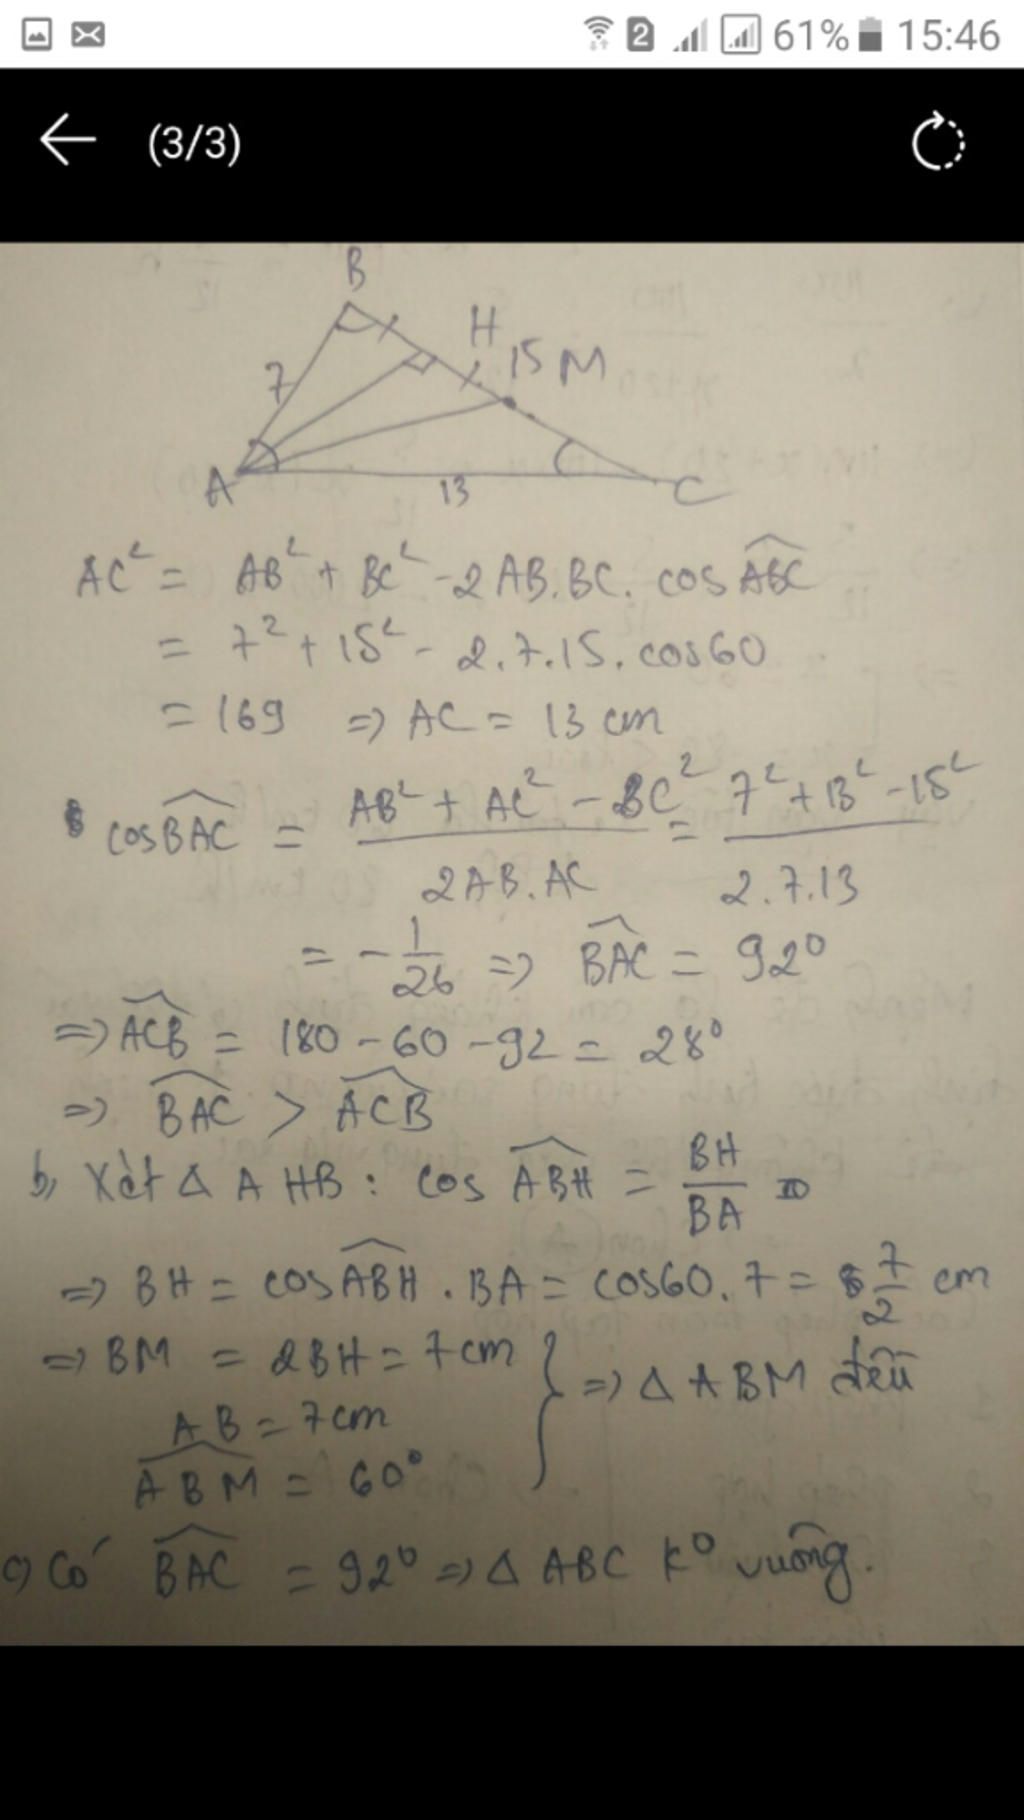 2 61% 15:46
(3/3)
B
H
7 15 M
A 13 C
AC² = AB² + BC² - 2AB.BC. cos ABC
= 7² + 15² - 2.7.15. cos60
= 169 => AC = 13 cm
cosBAC = (AB² + AC² - BC²)/(2AB.AC) = (7² + 13² - 15²)/(2.7.13)
= -1/26 => BAC = 92°
=> ACB = 180 - 60 - 92 = 28°
=> BAC > ACB
b, Xét Δ AHB: cos ABH = BH/BA
=> BH = cosABH . BA = cos60. 7 = 7/2 cm
=> BM = 2BH = 7cm
AB = 7cm } => Δ ABM đều
ABM = 60°
c) Có BAC = 92° => Δ ABC k° vuông.